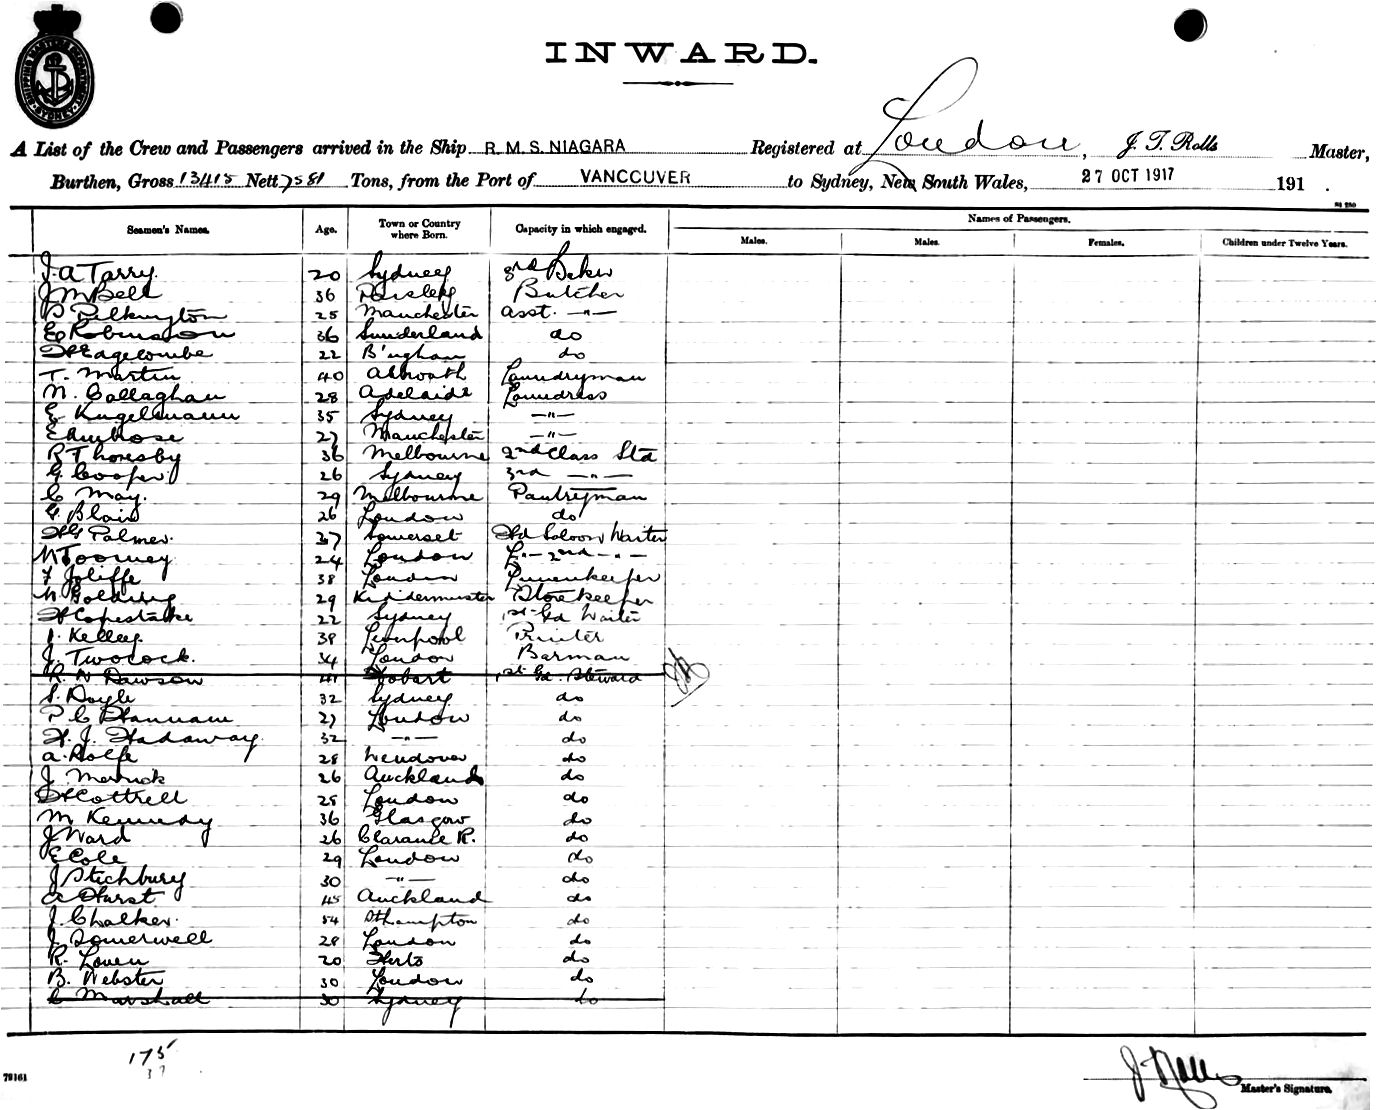 SHIPPING MASTER'S DEPARTMENT SYDNEY
INWARD.
A List of the Crew and Passengers arrived in the Ship R.M.S. NIAGARA Registered at London, J. T. Rolls Master,
Burthen, Gross 13415 Nett 7581 Tons, from the Port of VANCOUVER to Sydney, New South Wales, 27 OCT 1917 191 .
Seamen's Names. Age. Town or Country where Born. Capacity in which engaged. Names of Passengers.
Males. Males. Females. Children under Twelve Years.
J. A Tarry. 20 Sydney 3rd Baker
J McBell 36 Paisley Butcher
P Pilkington 25 Manchester asst. -"-
E Robinson 36 Sunderland do
H Edgecombe 22 B'ngham do
T. Martin 40 Laundryman
N. Callaghan 28 Adelaide Laundress
E Kugelmann 35 Sydney -"-
E Ambrose 27 Manchester -"-
R Thoresby 36 Melbourne 2nd Class Std
G. Cooper 26 Sydney 3rd -"-
C May. 29 Melbourne Pantryman
G. Blair 26 London do
H G Palmer. 37 Somerset Hd Saloon Waiter
N Toomey 24 London -"- 2nd -"-
F Joliffe 38 London Linenkeeper
N Golding 29 Kidderminster Storekeeper
H Copestake 22 Sydney 1st Gd Waiter
J. Kelley. 38 Liverpool Printer
J. Twocock. 34 London Barman
R. N Dawson 41 Hobart 1st Gd. Steward
S. Doyle 32 Sydney do
P C Hannam 27 London do
H. J. Hadaway. 32 -"- do
A. Rolfe 28 Wendover do
J. Merrick 26 Auckland do
H Cottrell 28 London do
M Kennedy 36 Glasgow do
J Ward 26 Clarance R. do
E Cole 29 London do
J Stichbury 30 -"- do
A Hurst 45 Auckland do
J. Chalker. 54 Sthampton do
J. Somerwell 28 London do
R. Loven 20 Herts do
B. Webster 30 London do
C Marshall 30 Sydney do
175
37
79161
J T Rolls
Master's Signature.